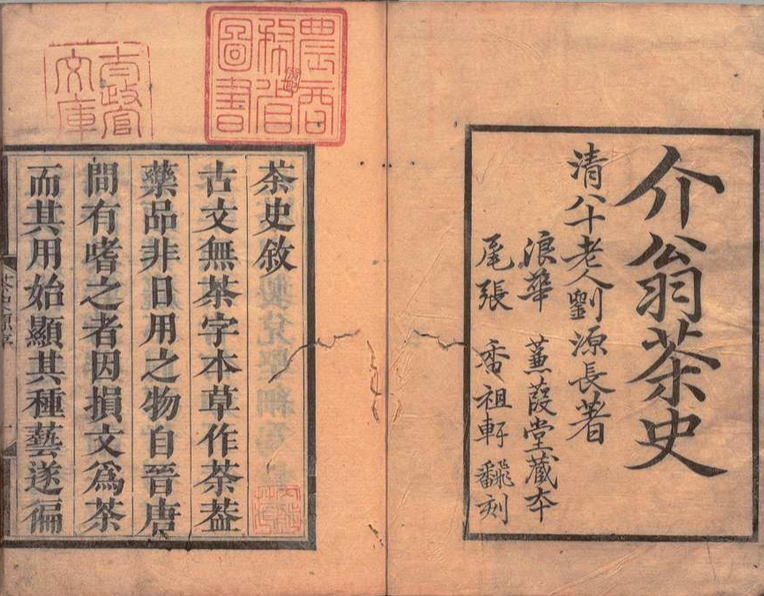 介翁茶史
清八十老人劉源長著
浪華 蒹葭堂藏本
尾張 香祖軒飜刻
農商
務省
圖書
太政官
文庫
茶史敘
古文無茶字本草作荼葢
藥品非日用之物自晉唐
間有嗜之者因損文爲茶
而其用始顯其種藝遂徧